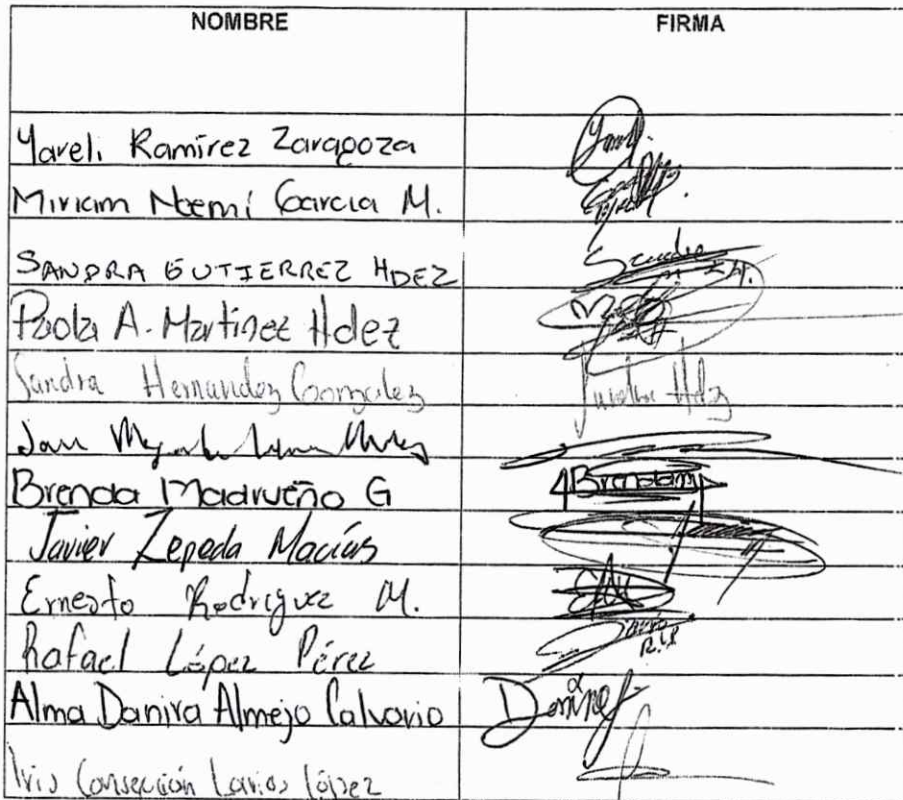 NOMBRE FIRMA
Yareli Ramírez Zaragoza Yareli
Miriam Noemí García M.
SANDRA GUTIERREZ HDEZ Sandra
Paola A. Martinez Hdez
Sandra Hernandez Gonzalez Sandra Hdz
Brenda Madrueño G Brendam
Javier Zepeda Macías
Ernesto Rodriguez M.
Rafael López Pérez R.L.P
Alma Danira Almejo Calvario
Iris Consección Larios López